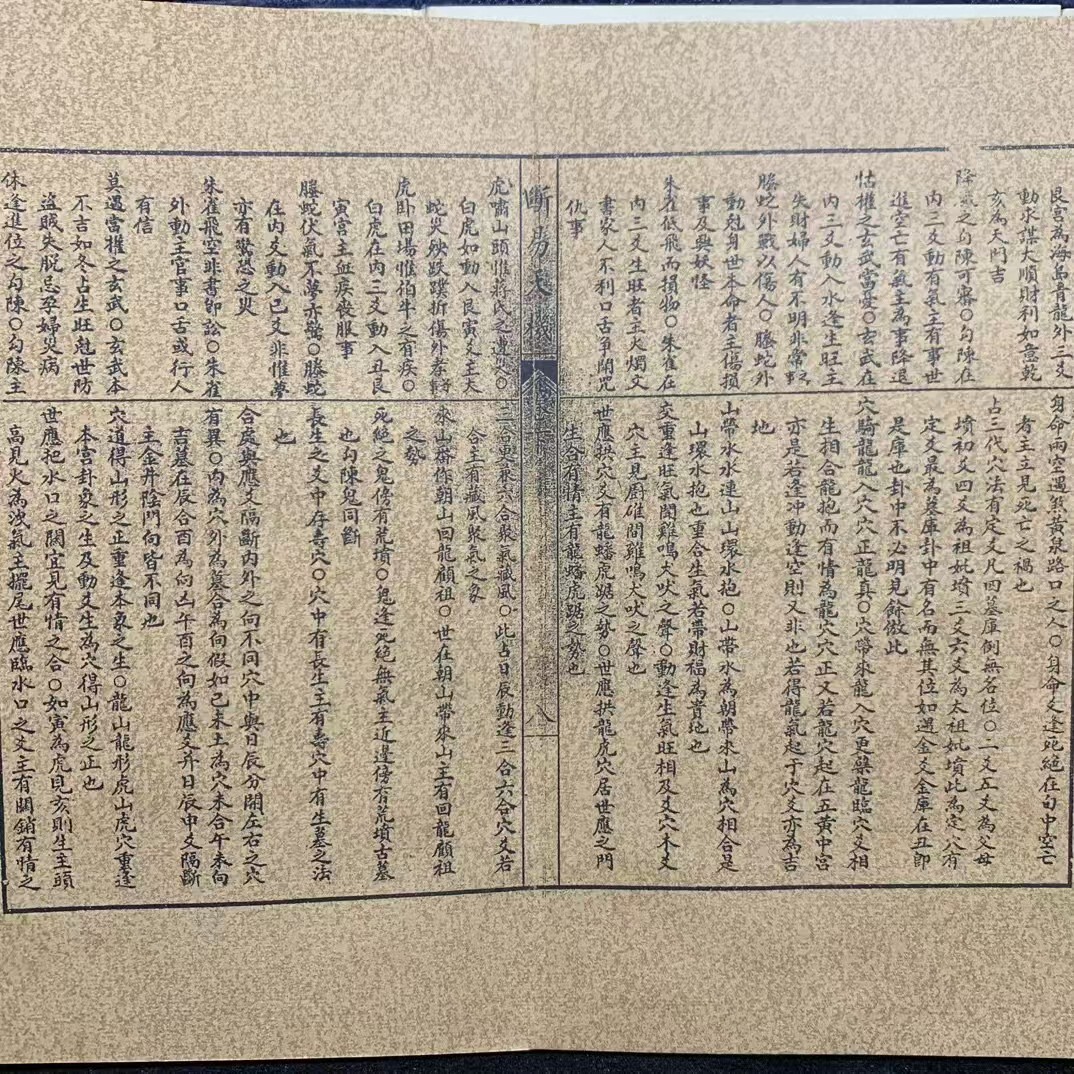 艮宮為海島青龍外三爻
動求謀大順財利如意乾
亥為天門吉
降之勾陳可審○勾陳在
內三爻動有氣主有事世
進空亡有氣主為事降退
怙權之玄武當憂○玄武在
內三爻動入水逢生旺主
失財婦人有不明非常
螣蛇之外戰以傷人○螣蛇外
動剋身世本命者主傷損
事及興妖怪
朱雀低飛而損物○朱雀在
內三爻生旺者主火燭文
書家人不利口舌爭鬧咒
仇事
身命兩空遇煞黃泉路口之人○身命爻逢死絕在旬中空亡
者主立見死亡之禍也
占三代穴法有定爻凡四墓庫倒無名位○二爻五爻為父母
墳初爻四爻為祖妣墳三爻六爻為太祖妣墳此為定八有
定爻最為墓庫卦中有名而無其位如遇金爻金庫在丑即
是庫也卦中不必明見餘倣此
穴騎龍龍入穴穴正龍真○穴帶來龍入穴更蘗龍臨穴爻相
生相合龍抱而有情為龍穴穴正又若龍穴起在五黃中宮
亦是若逢冲動逢空則又非也若得龍氣起于穴爻亦為吉
地
山帶水水連山山環水抱○山帶水為朝帶來山為穴相合是
山環水抱也重合生氣若帶財福為貴地也
交重逢旺氣聞雞鳴犬吠之聲○動逢生氣旺相及爻穴木爻
穴主見廚碓間雞鳴犬吠之聲也
世應拱穴爻有龍蟠虎踞之勢○世應拱龍虎穴居世應之門
生合有情主有龍蟠虎踞之勢也
斷易天機
八
虎嘯山頭惟蔣氏之遭○
白虎如動入艮寅爻主大
蛇災殃跌蹼折傷外孝
虎卧田塲惟伯牛之有疾○
白虎在內三爻動入丑艮
寅宮主血疾喪服事
螣蛇伏氣不夢亦驚○螣蛇
在內爻動入已爻非惟夢
亦有驚恐之災
朱雀飛空非書即訟○朱雀
外動主官事口舌或行人
有信
莫遇當權之玄武○玄武本
不吉如冬占生旺剋世防
盜賊失脫忌孕婦災病
休逢進位之勾陳○勾陳主
三合更兼六合聚氣藏風○此占日辰動逢三合六合穴爻若
合主有藏風聚氣之象
來山齋作朝山回龍顧祖○世在朝山帶來山主有回龍顧祖
之勢
死絕之鬼傍有荒墳○鬼逢死絕無氣主近邊傍有荒墳古墓
也勾陳鬼同斷
長生之爻中存壽穴○穴中有長生主有壽穴中有生墓之法
也
合處與應爻隔斷內外之向不同穴中與日辰分開左右之穴
有異○內為穴外為墓合為向假如已未土為穴未合午未向
吉墓在辰合酉為向凶午酉之向為應爻并日辰申爻隔斷
主金井陰門向皆不同也
穴道得山形之正重逢本象之生○龍山龍形虎山虎穴重逢
本宮卦象之生及動爻生為穴得山形之正也
世應把水口之關宜見有情之合○如寅為虎見亥則生主頭
高見火為洩氣主擺尾世應臨水口之爻主有關銷有情之